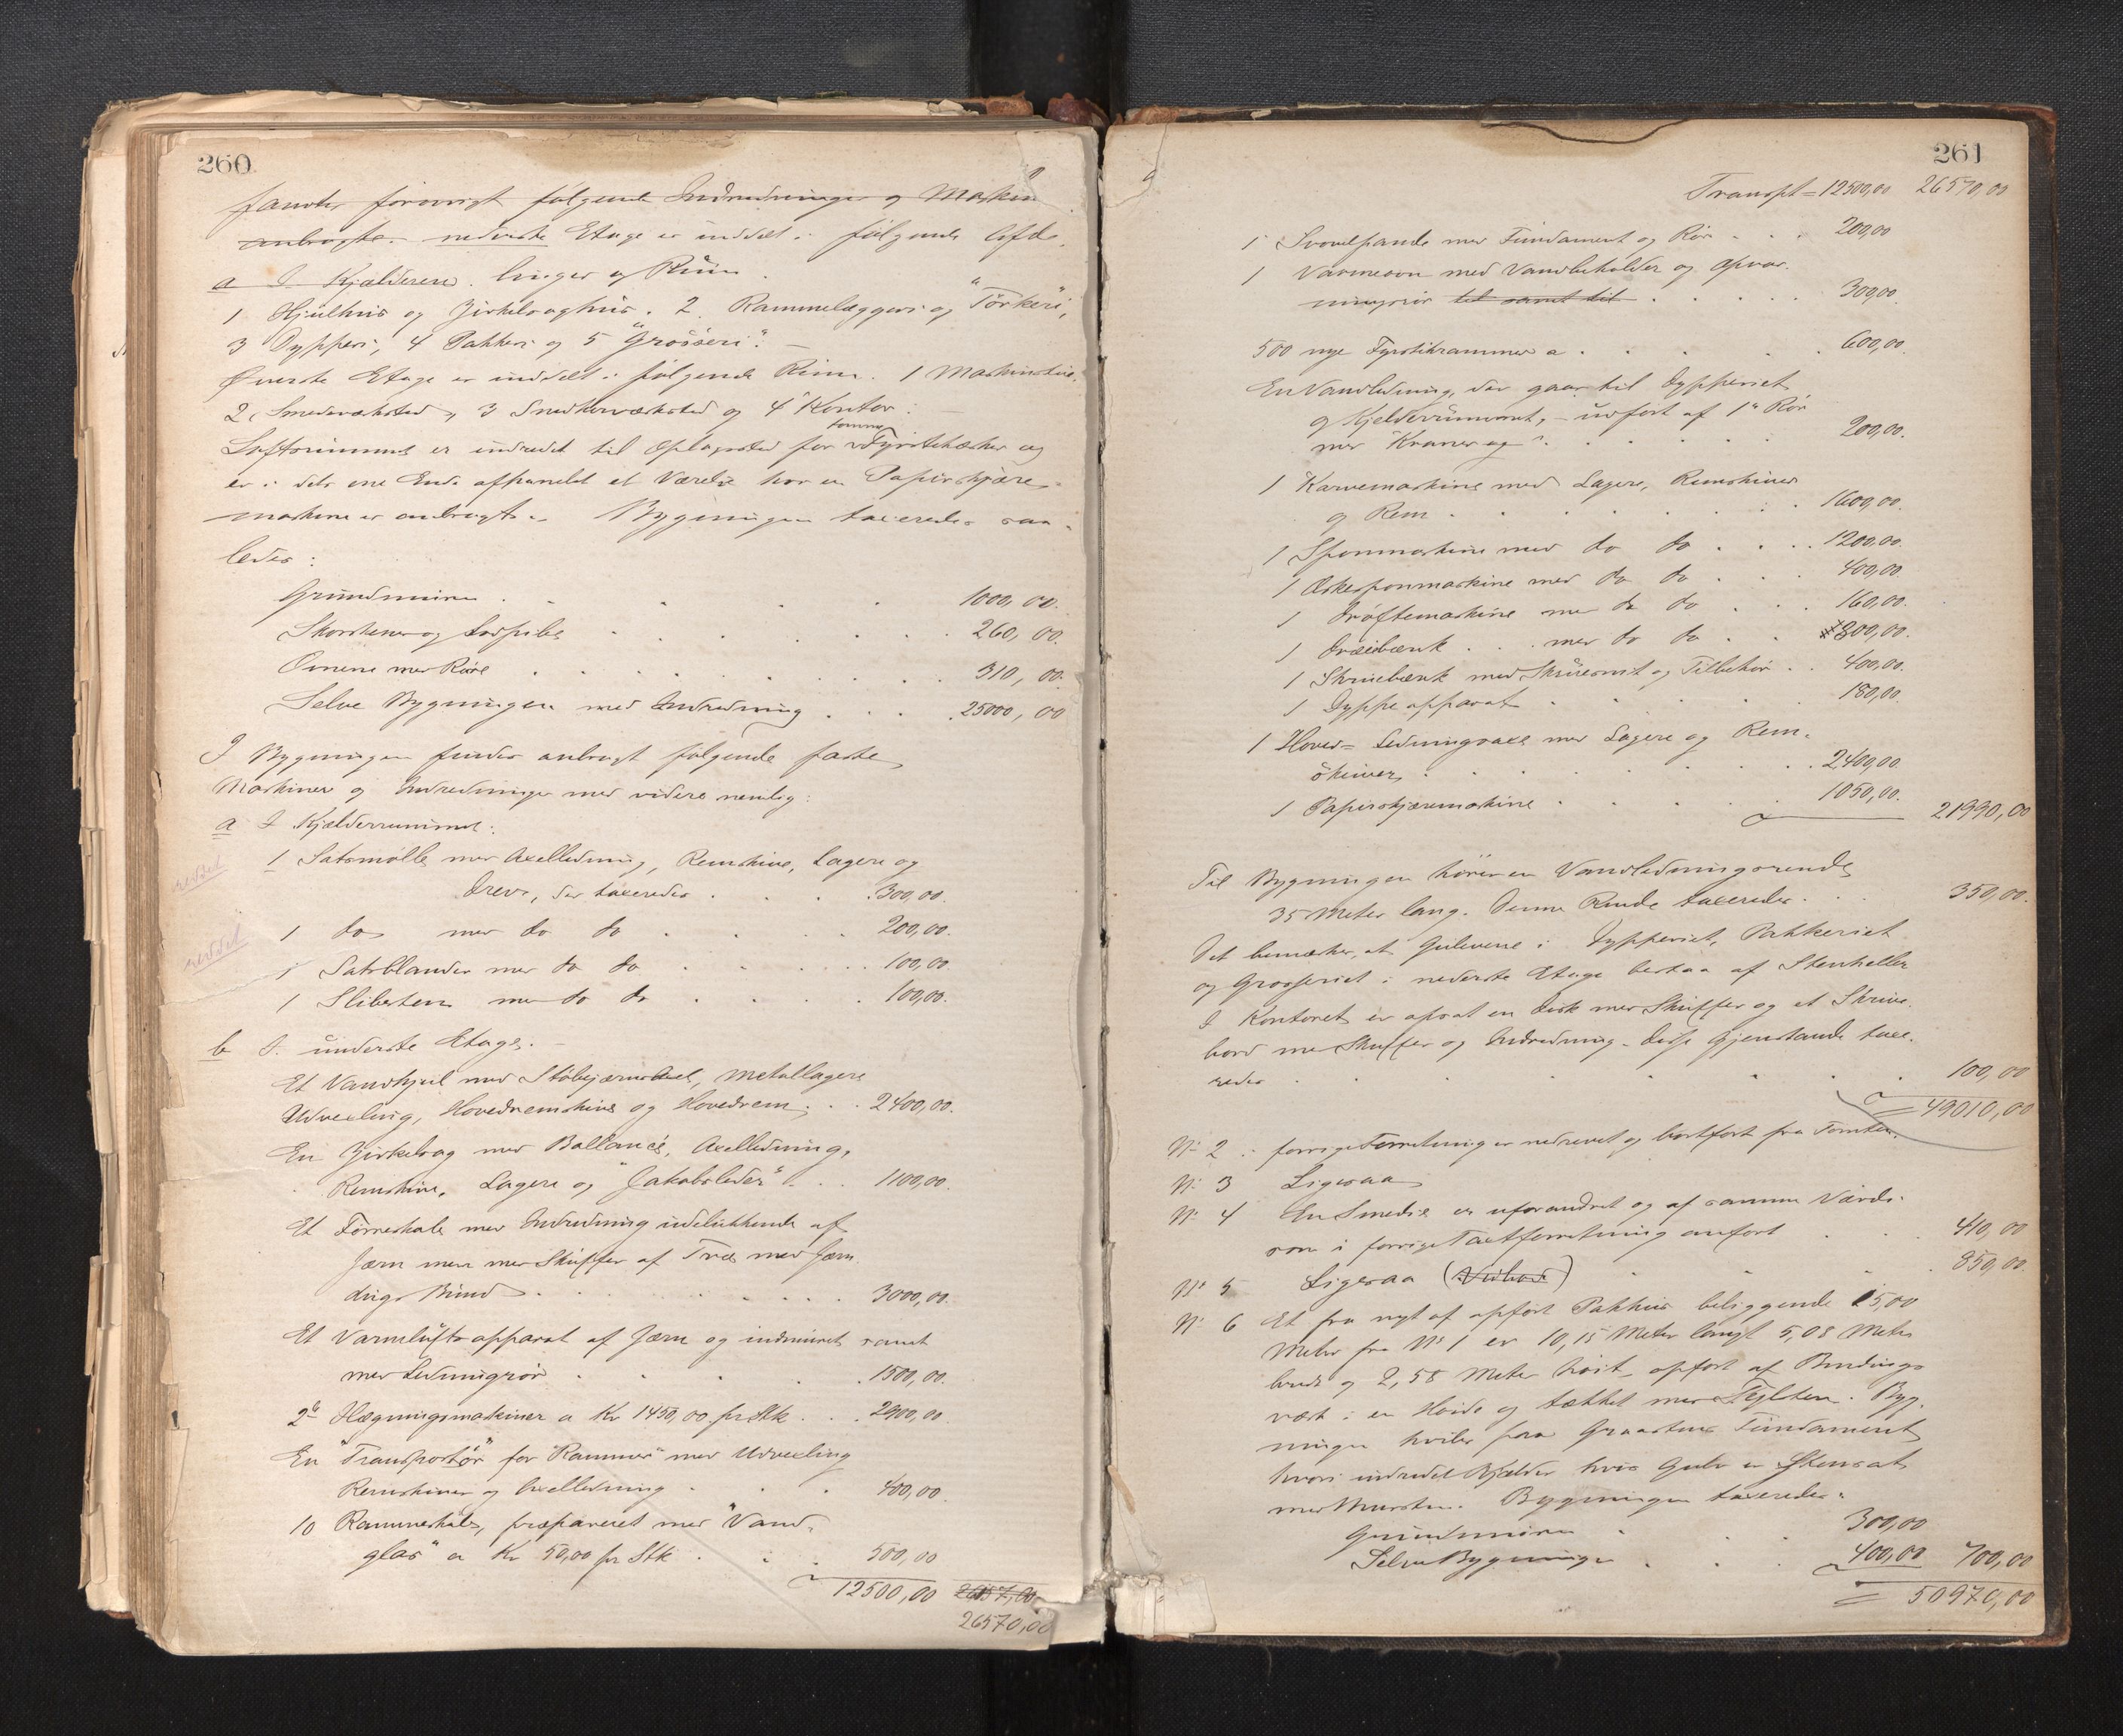 260
følgende Indredninger og Maskin
anbragte. nederste Etage er inddelt i følgende Afde-
a I Kjælderen. linger og Rum.
1 Hjulhus og Zirkelsaghus. 2 Rammelæggeri og "Tørkeri",
3 Dypperi, 4 Pakkeri og 5 "Grosseri". —
Øverste Etage er inddelt i følgende Rum. 1 Maskinstue,
2 Smedeværksted, 3 Snedkerværksted og 4 Kontor. —
tomme
Loftsrummet er indredet til Oplagssted for Fyrstikæsker og
er i dets ene Ende afpanelet et Værelse hvor en Papirskjære-
maskine er anbragt. — Bygningen taxeredes saa-
ledes:
Grundmuren . . . . 1000,00.
Skorstener og Ildspibe . . . . 260,00.
Ovnene med Røre . . . . 310,00.
Selve Bygningen med Indredning . . . . 25000,00
I Bygningen findes anbragt følgende faste
Maskiner og Indredninger med videre nemlig:
a I Kjælderrummet:
reddet
1 Satsmølle med Axelledning, Remskive, Lagere og
Drev, der taxeredes . . . . 300,00.
1 do med do do . . . . 200,00.
reddet
1 Satsblander med do do . . . . 100,00
1 Slibesten med do do . . . . 100,00.
b I underste Etage. —
Et Vandhjul med Støbejærnsaxel, Metallagere
Udvexling, Hovedremskive og Hovedrem . . 2400,00.
En Zirkelsag med Ballance, Axelledning,
Remskive, Lagere og "Jakobsleder" . . 1100,00.
Et Tørreskab med Indredning udelukkende af
Jærn men med Skuffer af Træ med Jærn-
dugs Bund . . . . 3000,00.
Et Varmluftsapparat af Jærn og indmuret samt
med Ledningsrør . . . . 1500,00.
2de Ilægningsmaskiner a Kr 1450,00 pr Stk . . . 2900,00.
En "Transportør" for "Rammer" med Udvexling
Remskiver og Axelledning . . . 400,00.
10 Rammeskabe, præpareret med "Vand-
glas" a Kr 50,00 pr Stk . . . 500,00
12500,00 2657,00
26570,00
261
Transpt = 12500,00 26570,00
1 Svovelpande med Fundament og Rør . . . 200,00
1 Varmeovn med Vandbeholder og Opvar-
mingsrør til samt til . . . . 300,00.
500 nye Fyrstikrammer a . . . . 600,00.
En Vandledning, der gaar til Dypperiet
og Kjelderrummet, — udført af 1" Rør
med Kraner og . . . . 200,00.
1 Karvemaskine med Lagere, Remskiver
og Rem . . . . 1600,00.
1 Sponmaskine med do do . . . . 1200,00.
1 Æskesponmaskine med do do . . . 400,00
1 Drøftemaskine med do do . . . 160,00.
1 Dreiebænk . . . med do do . . 800,00.
1 Skruebænk med Skruesnit og Tilbehør . . 400,00.
1 Dyppeapparat . . . . 180,00.
1 Hoved= Ledningsaxe med Lagere og Rem-
skiver . . . . 2400,00.
1 Papirskjæremaskine . . . . 1050,00. 21990,00
Til Bygningen hører en Vandledningsrende
35 Meter lang. Denne Rende taxeredes . . . 350,00.
Det bemærkes, at Gulvene i Dypperiet, Pakkeriet
og Grosseriet i nederste Etage bestaa af Stenheller
I Kontoret er opsat en Disk med Skuffer og et Skrive-
bord med Skuffer og Indredning. Disse Gjenstande taxe-
redes . . . . 100,00
= 49010,00
N: 2 i forrige Forretning er nedrevet og bortført fra Tomten.
N: 3 Ligesaa
N: 4 En Smedie er uforandret og af samme Værdi
som i forrige Taxtforretning anført . . . 410,00
N: 5 Ligesaa (Vedbod) . . . . 850,00.
N: 6 Et fra nyt af opført Pakhus beliggende 15,00
Meter fra N: 1 er 10,15 Meter langt 5,08 Meter
bredt og 2,58 Meter høit, opført af Bindings-
værk i en Høide og tækket med Teglsten. Byg-
ningen hviler paa Graastens Fundament
hvori indredet Kjælder hvis Gulv er Stensat
med Mursten. Bygningen taxeredes:
Grundmuren . . . 300,00
Selve Bygningen . . . 400,00 700,00
= 50970,00